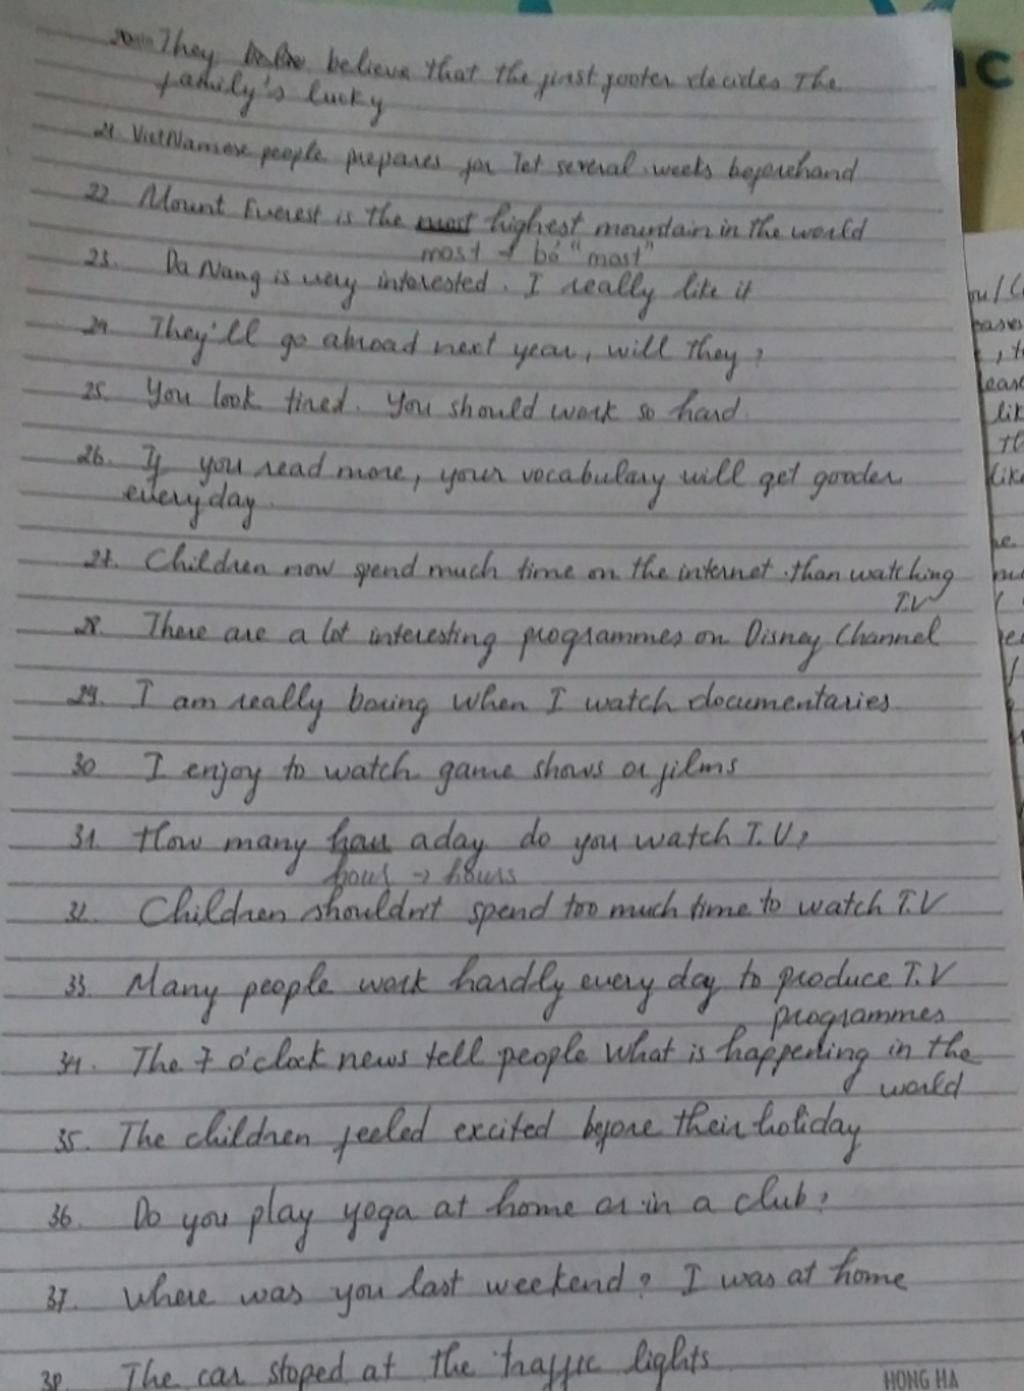 20. They believe that the first footer decides the
family's lucky
21. VietNamese people prepares for Tet several weeks beforehand
22. Mount Everest is the most highest mountain in the world
most → bỏ "most"
23. Da Nang is very interested. I really like it
24. They'll go abroad next year, will they?
25. You look tired. You should work so hard.
26. If you read more, your vocabulary will get gooder
everyday.
27. Children now spend much time on the internet than watching
T.V
28. There are a lot interesting programmes on Disney Channel
29. I am really boring when I watch documentaries
30 I enjoy to watch game shows or films
31. How many hour a day do you watch T.V?
hour → hours
32. Children shouldn't spend too much time to watch T.V
33. Many people work hardly every day to produce T.V
programmes
34. The 7 o'clock news tell people what is happening in the
world
35. The children feeled excited before their holiday
36. Do you play yoga at home or in a club?
37. Where was you last weekend? I was at home
38. The car stoped at the traffic lights
HONG HA